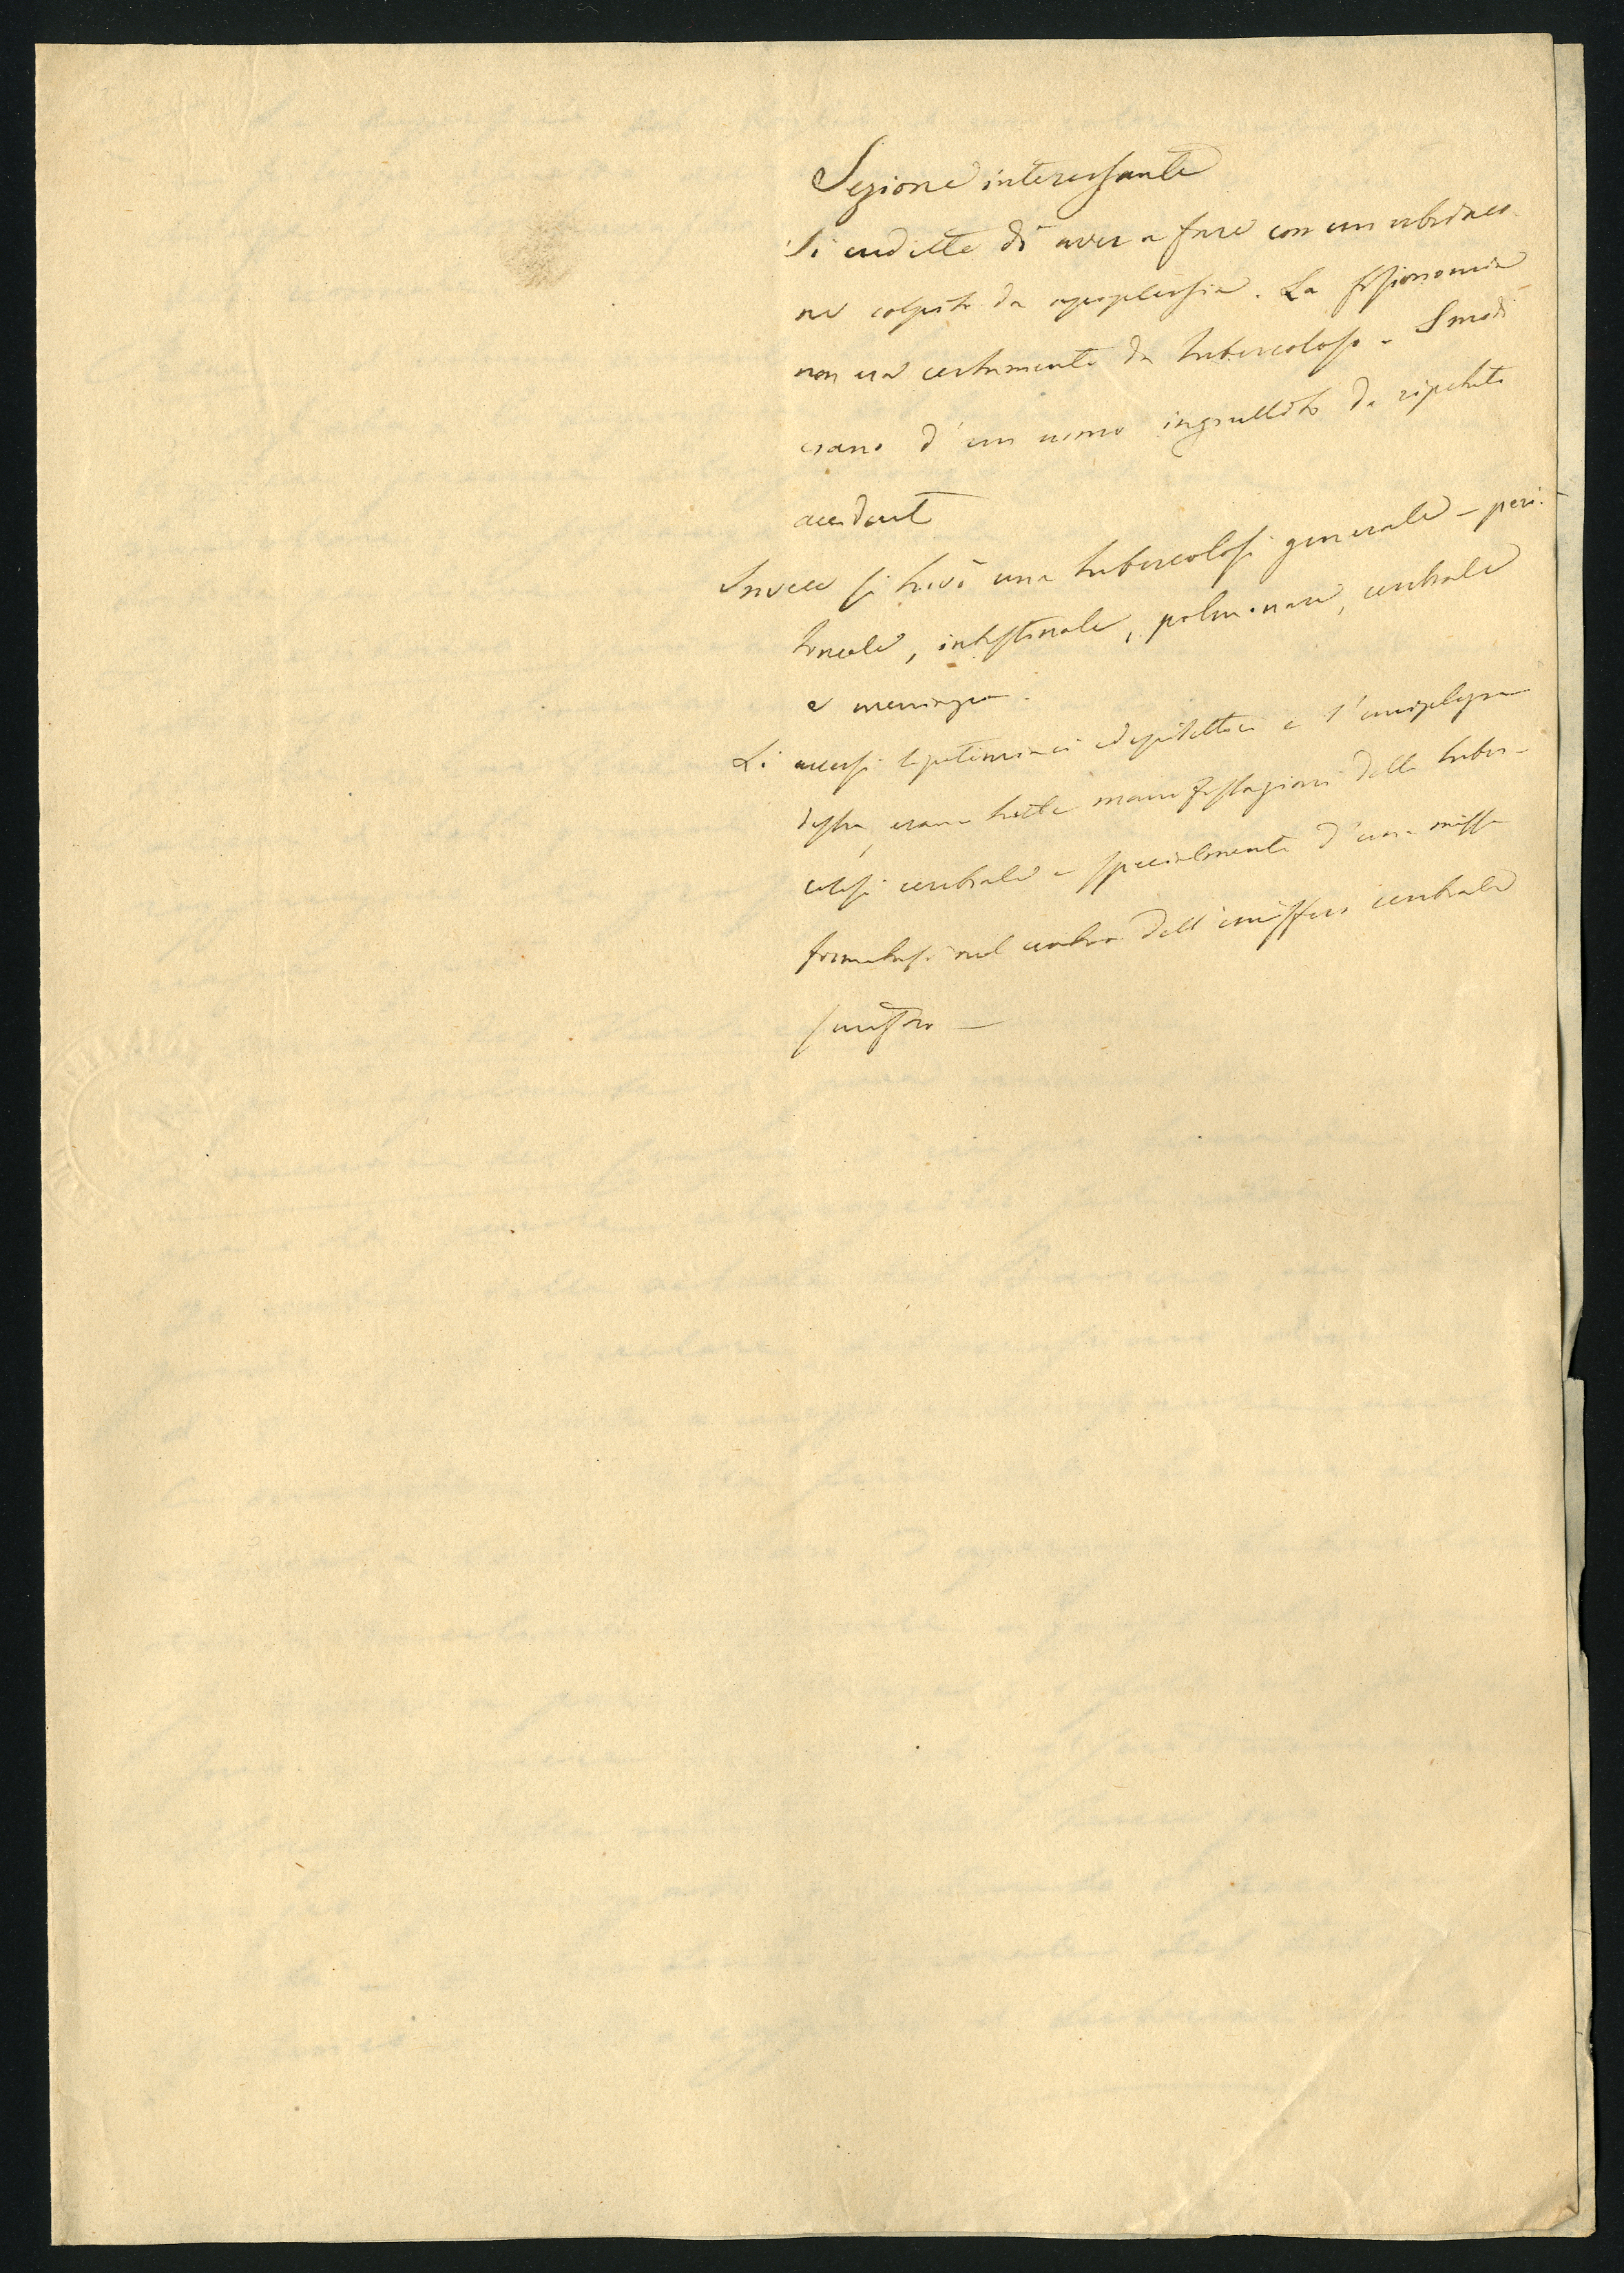 Sezione interessante
Si credette di aver a fare con un ubbriaco-
ne colpito da apoplessia. La fisionomia
non era certamente da tubercoloso - I modi
erano d'un uomo ingrullito da ripetuti
accidenti
Invece si trovò una tubercolosi generale - peri-
toneale, intestinale, polmonare, cerebrale
e meningea.
Li accessi epilettici e l'emiplegia
destra, erano tutte manifestazioni della tuber-
colosi cerebrale e specialmente d'una massa
formatasi nel centro dell'emisfero cerebrale
sinistro -